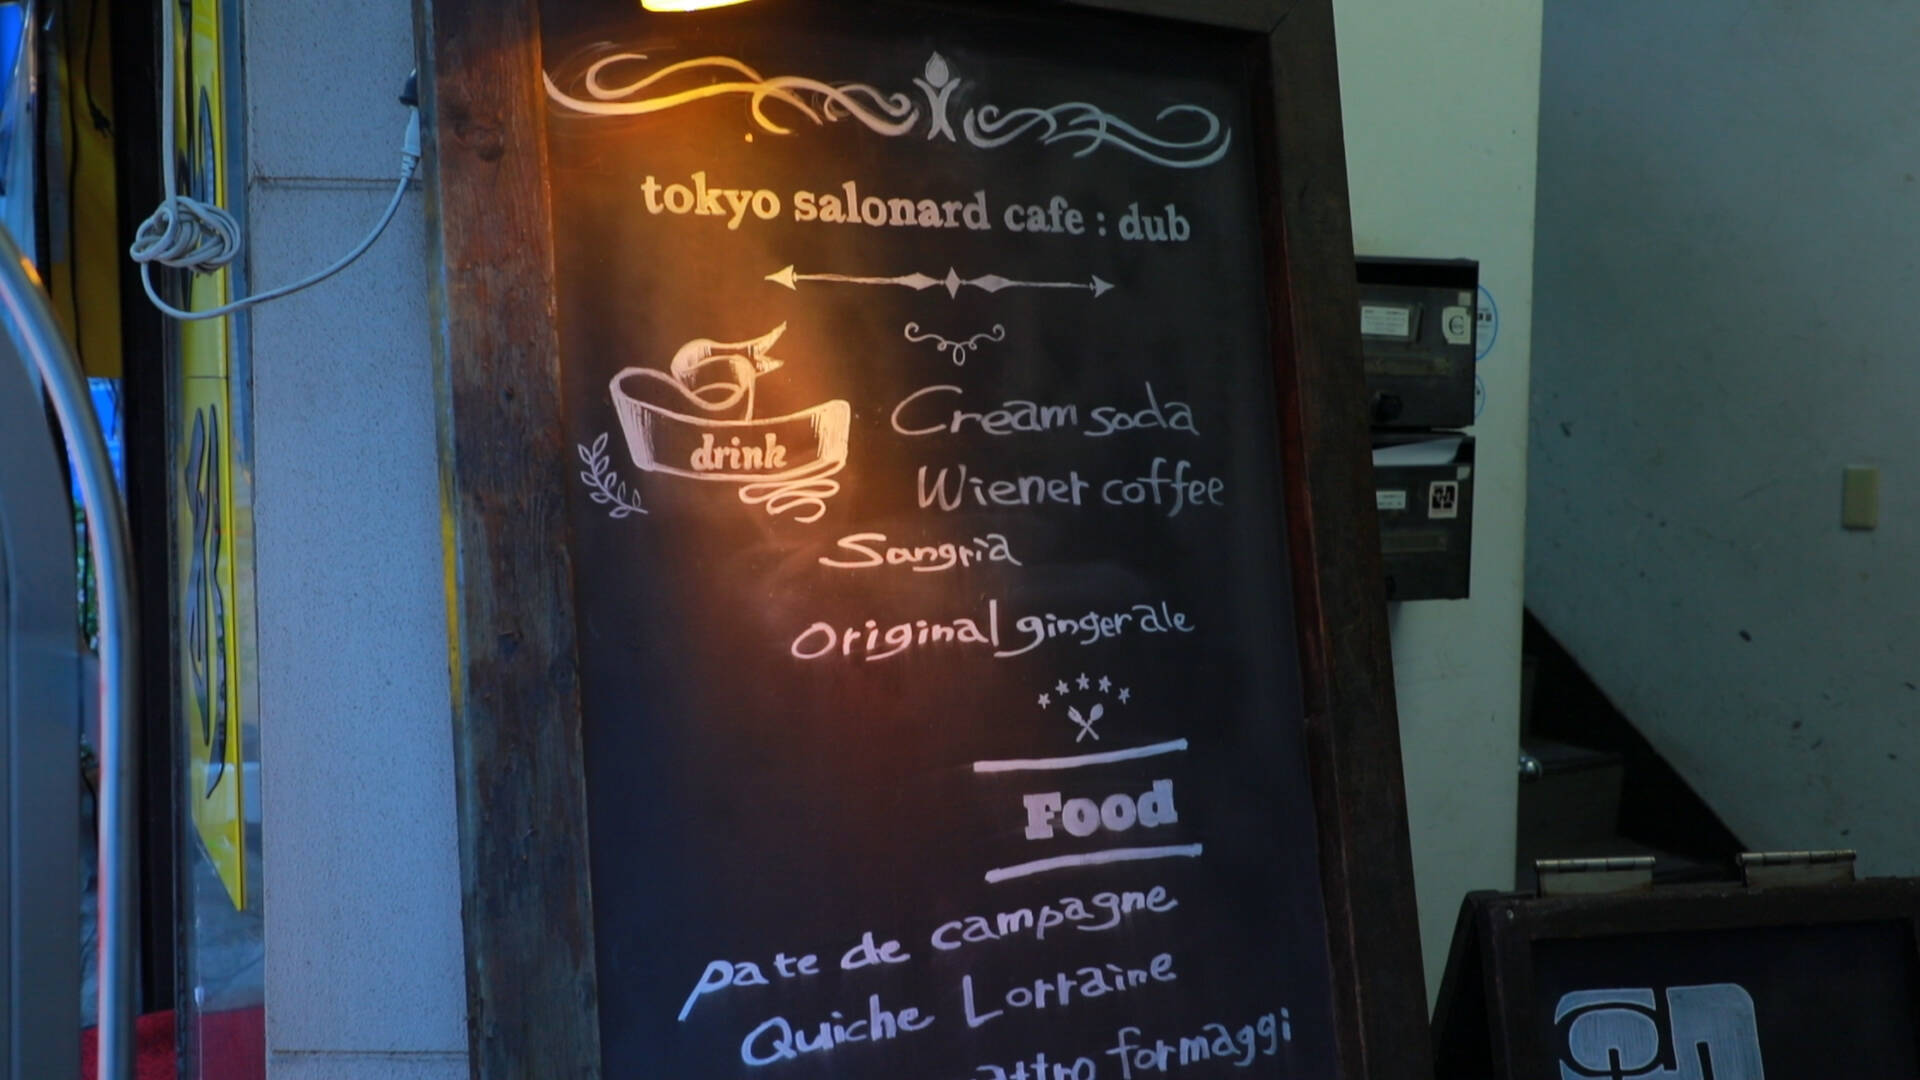 tokyo salonard cafe : dub
drink
Cream soda
Wiener coffee
Sangria
Original ginger ale
Food
pate de campagne
Quiche Lorraine
formaggi